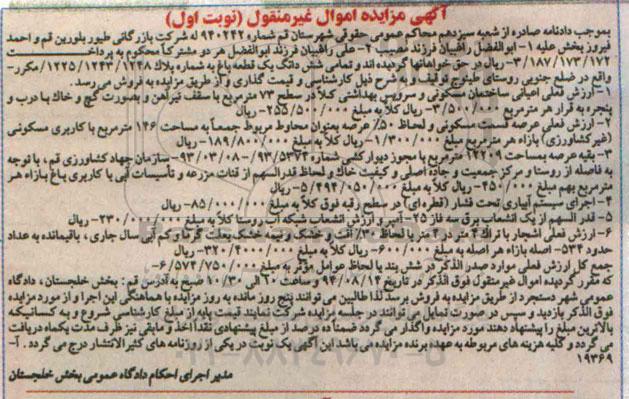 آگهی مزایده اموال غیرمنقول (نوبت اول)
بموجب دادنامه صادره از شعبه سیزدهم محاکم عمومی حقوقی شهرستان قم شماره ۹۴۰۲۴۲ له شرکت بازرگانی طیور بلورین قم و احمد
فیروز بخش علیه ۱- ابوالفضل راغبیان فرزند مصیب ۲- علی راغبیان فرزند ابوالفضل هر دو مشترکاً محکوم به پرداخت
۳/۱۸۷/۱۷۳/۱۷۲- ریال در حق خواهانها گردیده اند و تمامی شش دانگ یک قطعه باغ به شماره پلاک ۱۲۴۸/ ۱۲۴۳/ ۱۲۲۵/ مکرر-
واقع در ضلع جنوبی روستای طینوج توقیف و به شرح ذیل کارشناسی و قیمت گذاری و از طریق مزایده به فروش می رسد.
۱- ارزش فعلی اعیانی ساختمان مسکونی و سرویس بهداشتی کلاً در سطح ۷۳ مترمربع با سقف تیرآهن و بصورت گچ و خاک با درب و
پنجره به قرار هر مترمربع ۳/۵۰۰/۰۰۰- ریال کلاً به مبلغ ۲۵۵/۵۰۰/۰۰۰- ریال
۲- ارزش فعلی عرصه قسمت مسکونی و لحاظ ۵۰٪ عرصه بعنوان محاوط مربوط جمعاً به مساحت ۱۴۶ مترمربع با کاربری مسکونی
(غیر کشاورزی) بازاء هر مترمربع مبلغ ۱/۳۰۰/۰۰۰- ریال کلاً به مبلغ ۱۸۹/۸۰۰/۰۰۰- ریال
۳- بقیه عرصه بمساحت ۱۲۲۰۹ مترمربع با مجوز دیوارکشی شماره ۹۳/۵۳۷۴- ۹۳/۰۳/۰۸- سازمان جهاد کشاورزی قم، با توجه
به فاصله از روستا و مرکز جمعیت و جاده اصلی و کیفیت خاک و لحاظ قدرالسهم از قنات مزرعه و تأسیسات آبی با کاربری باغ بازاء هر
مترمربع بهم مبلغ ۴۵۰/۰۰۰- ریال کلاً به مبلغ ۵/۴۹۴/۰۵۰/۰۰۰- ریال
۴- اجرای سیستم آبیاری تحت فشار (قطره ای) در سطح رقبه فوق کلاً به مبلغ ۸۵/۰۰۰/۰۰۰- ریال
۵- قدر السهم از یک انشعاب برق سه فاز ۲۵- آمپر و ارزش انشعاب شبکه آب روستا کلاً به مبلغ ۲۳۰/۰۰۰/۰۰۰- ریال
۶- ارزش فعلی اشجار با تراک ۴ متر در ۴ متر با لحاظ ۳۰٪ آفت و خشک و نیمه خشک بعلت گرما و کم آبی سال جاری، باقیمانده به عداد
حدود ۵۳۴- اصله بازاء هر اصله به مبلغ ۶۰۰/۰۰۰- ریال کلاً به مبلغ ۳۲۰/۴۰۰۰/۰۰۰- ریال
جمع کل ارزش فعلی موارد صدر الذکر در شش بند با لحاظ عوامل مؤثر به مبلغ ۶/۵۷۴/۷۵۰/۰۰۰- ریال
که مقرر گردیده اموال غیرمنقول فوق الذکر در تاریخ ۹۴/۰۸/۱۴ و ساعت ۲۰ الی ۱۰/۳۰ صبح به آدرس قم: بخش خلجستان، دادگاه
عمومی شهر دستجرد از طریق مزایده به فروش برسد لذا طالبین می توانند پنج روز مانده به روز مزایده با هماهنگی این اجرا و از مورد مزایده
فوق الذکر بازدید و سپس در صورت تمایل می توانند در جلسه مزایده شرکت نمایند قیمت پایه از مبلغ کارشناسی شروع و به کسانیکه
بالاترین مبلغ را پیشنهاد دهند مورد مزایده واگذار می گردد ضمناً ده درصد از مبلغ پیشنهادی نقداً اخذ و مابقی نیز ظرف مدت یکماه دریافت
می گردد و کلیه هزینه های مربوطه به عهده برنده مزایده می باشد این آگهی یک نوبت در یکی از روزنامه های کثیر الانتشار درج می گردد. آ-
۱۹۳۶۹
مدیر اجرای احکام دادگاه عمومی بخش خلجستان